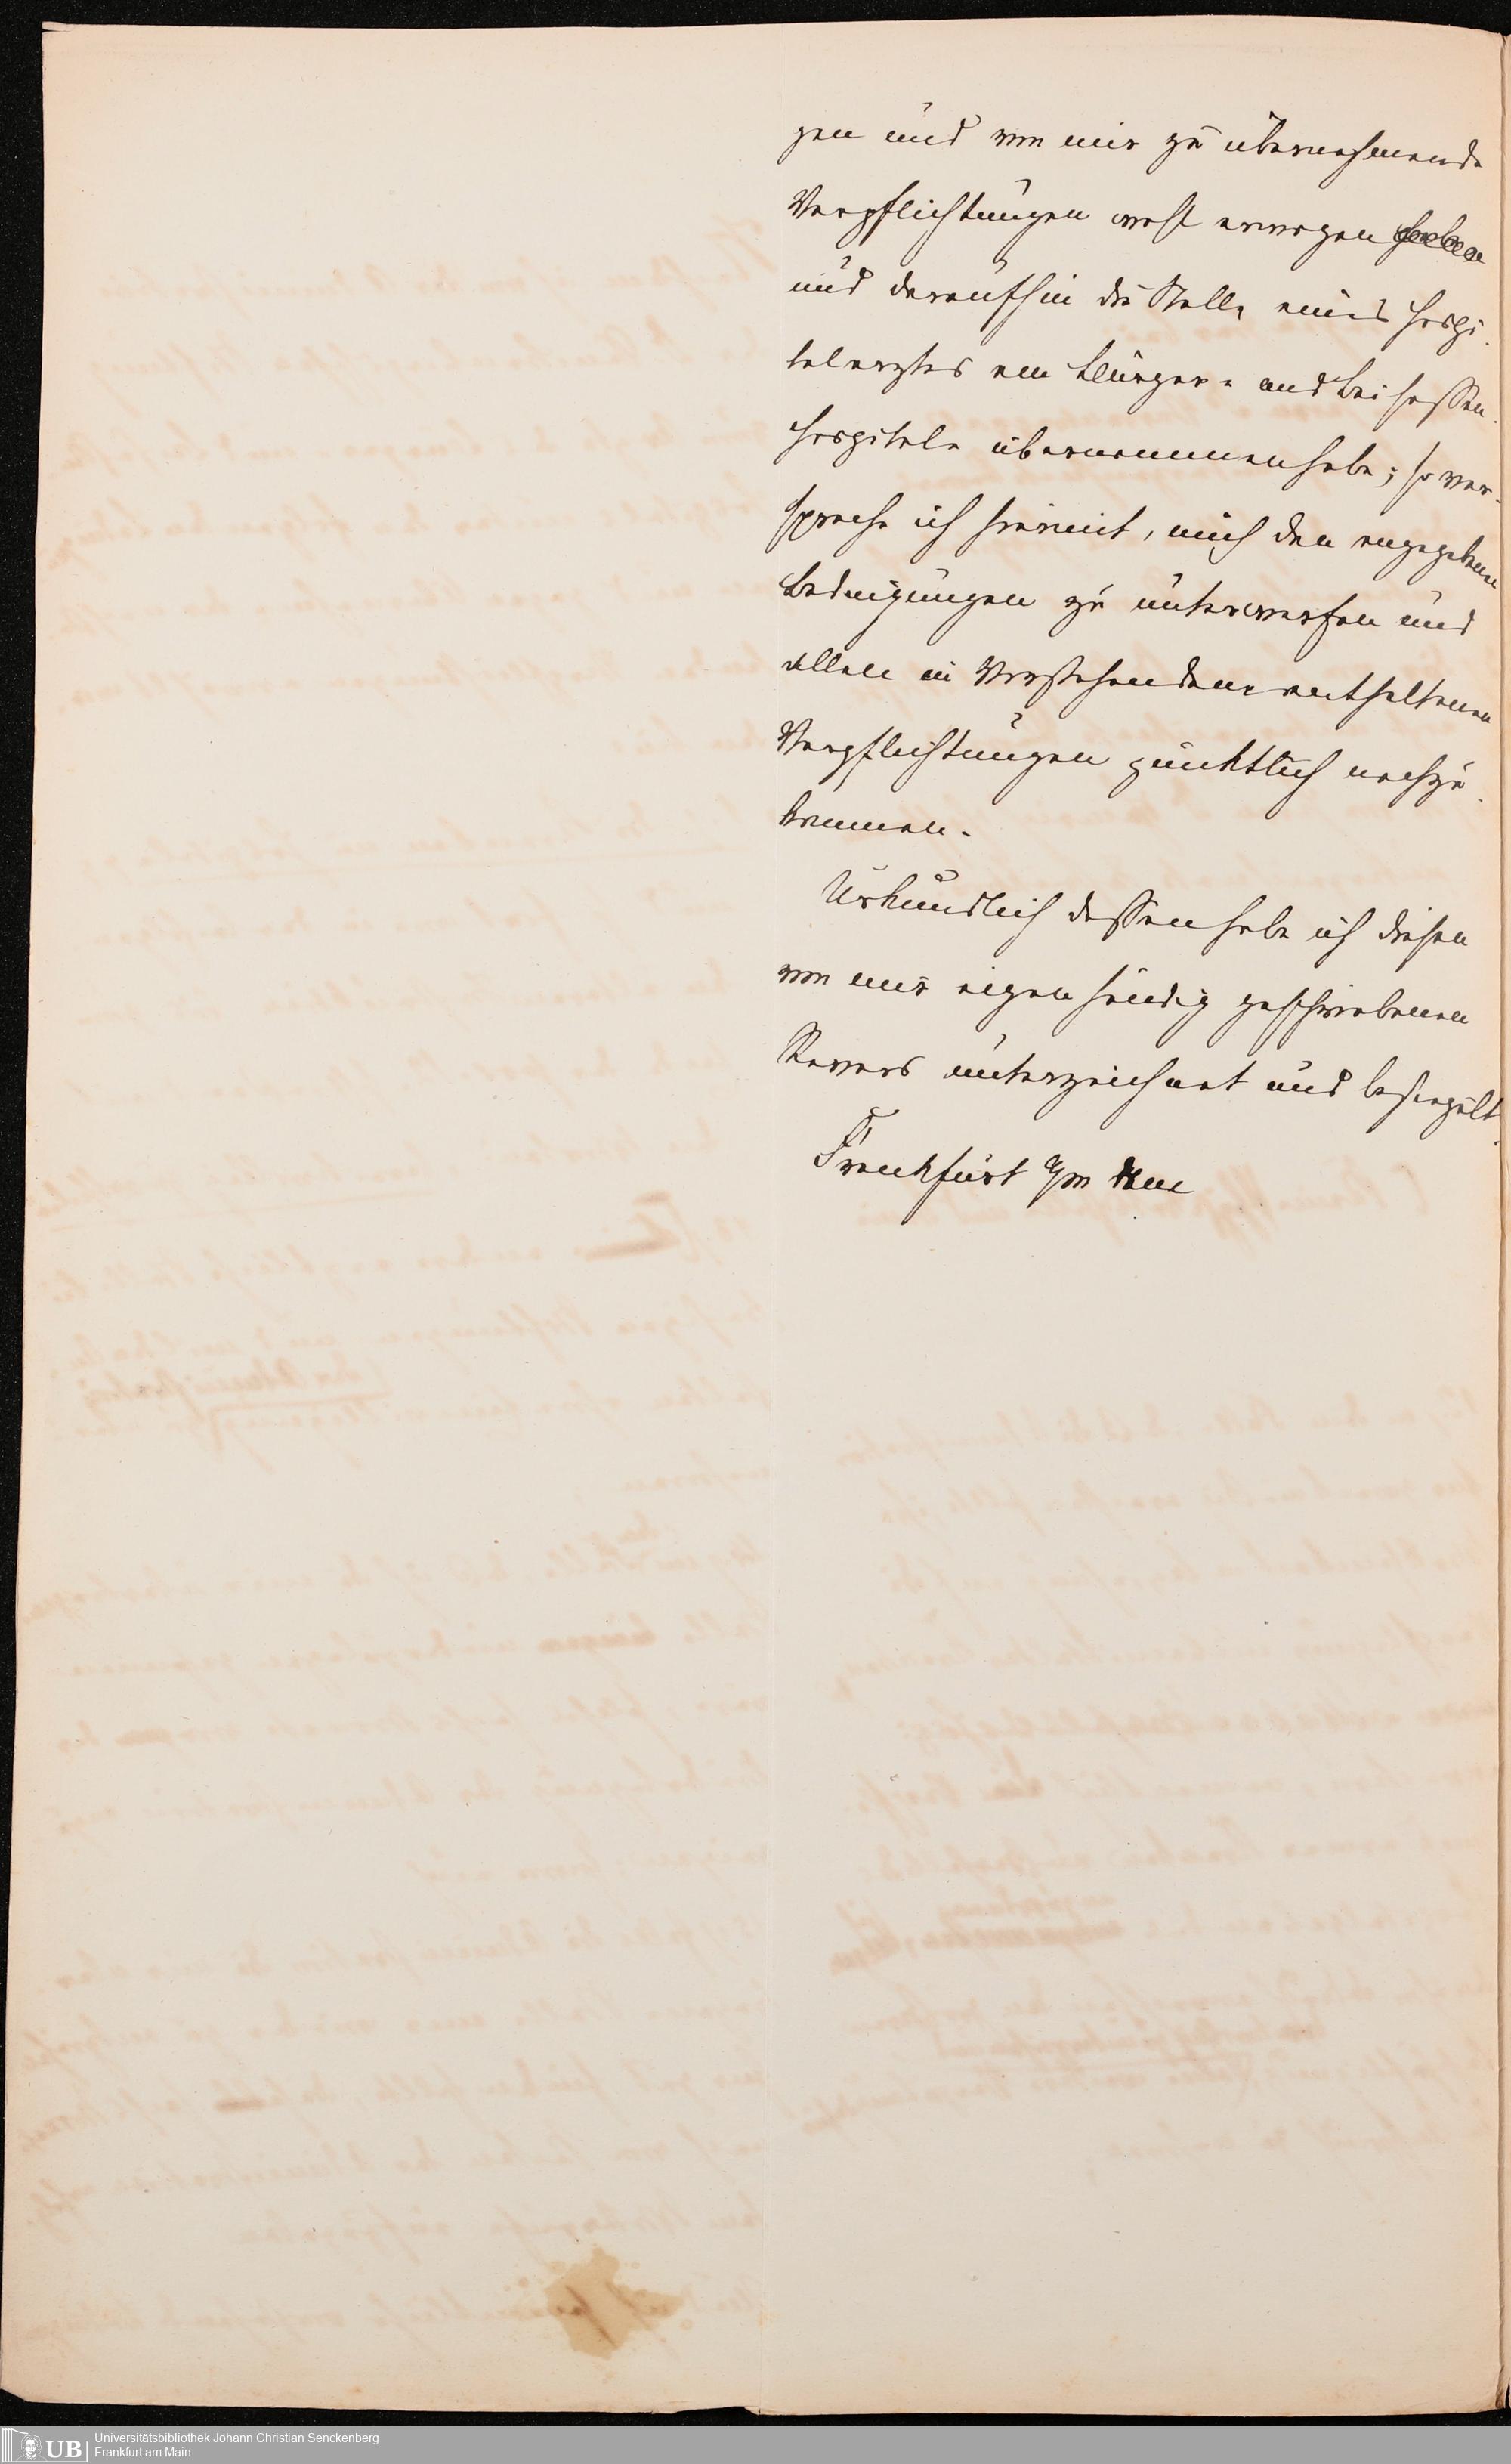 gen und von mir zu übernehmende
Verpflichtungen wohl erwogen
und daraufhin die Stelle eines Hospi-
talarztes am Bürger- und Beisassen-
Hospitale übernommen habe; so ver-
spreche ich hiermit, mich den angegebenen
Bedingungen zu unterwerfen und
allen in Vorstehendem enthaltenen
Verpflichtungen pünktlich nachzu-
kommen.
Urkundlich dessen habe ich diesen
von mir eigenhändig geschriebenen
Revers unterzeichnet und besiegelt.
Frankfurt a/m den
UB
Universitätsbibliothek Johann Christian Senckenberg
Frankfurt am Main